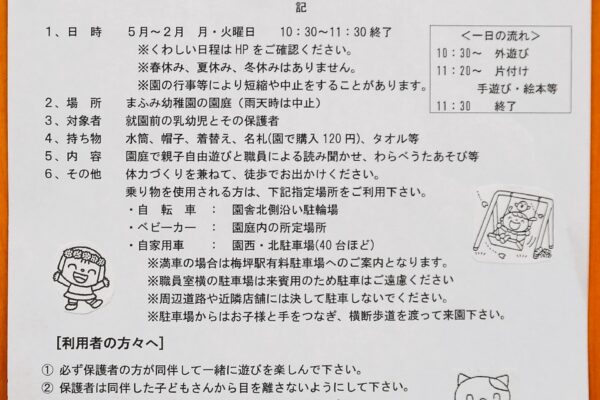 記
1、日　時　５月～２月　月・火曜日　10：30～11：30 終了
※くわしい日程は HP をご確認ください。
※春休み、夏休み、冬休みはありません。
※園の行事等により短縮や中止をすることがあります。
＜一日の流れ＞
10：30～　外遊び
11：20～　片付け
手遊び・絵本等
11：30　終了
2、場　所　まふみ幼稚園の園庭（雨天時は中止）
3、対象者　就園前の乳幼児とその保護者
4、持ち物　水筒、帽子、着替え、名札(園で購入 120 円)、タオル等
5、内　容　園庭で親子自由遊びと職員による読み聞かせ、わらべうたあそび等
6、その他　体力づくりを兼ねて、徒歩でお出かけください。
乗り物を使用される方は、下記指定場所をご利用下さい。
・自　転　車　：　園舎北側沿い駐輪場
・ベビーカー　：　園庭内の所定場所
・自家用車　：　園西・北駐車場(40 台ほど)
※満車の場合は梅坪駅有料駐車場へのご案内となります。
※職員室横の駐車場は来賓用のため駐車はご遠慮ください
※周辺道路や近隣店舗には決して駐車しないでください。
※駐車場からはお子様と手をつなぎ、横断歩道を渡って来園下さい。
［利用者の方々へ］
① 必ず保護者の方が同伴して一緒に遊びを楽しんで下さい。
② 保護者は同伴した子どもさんから目を離さないようにして下さい。